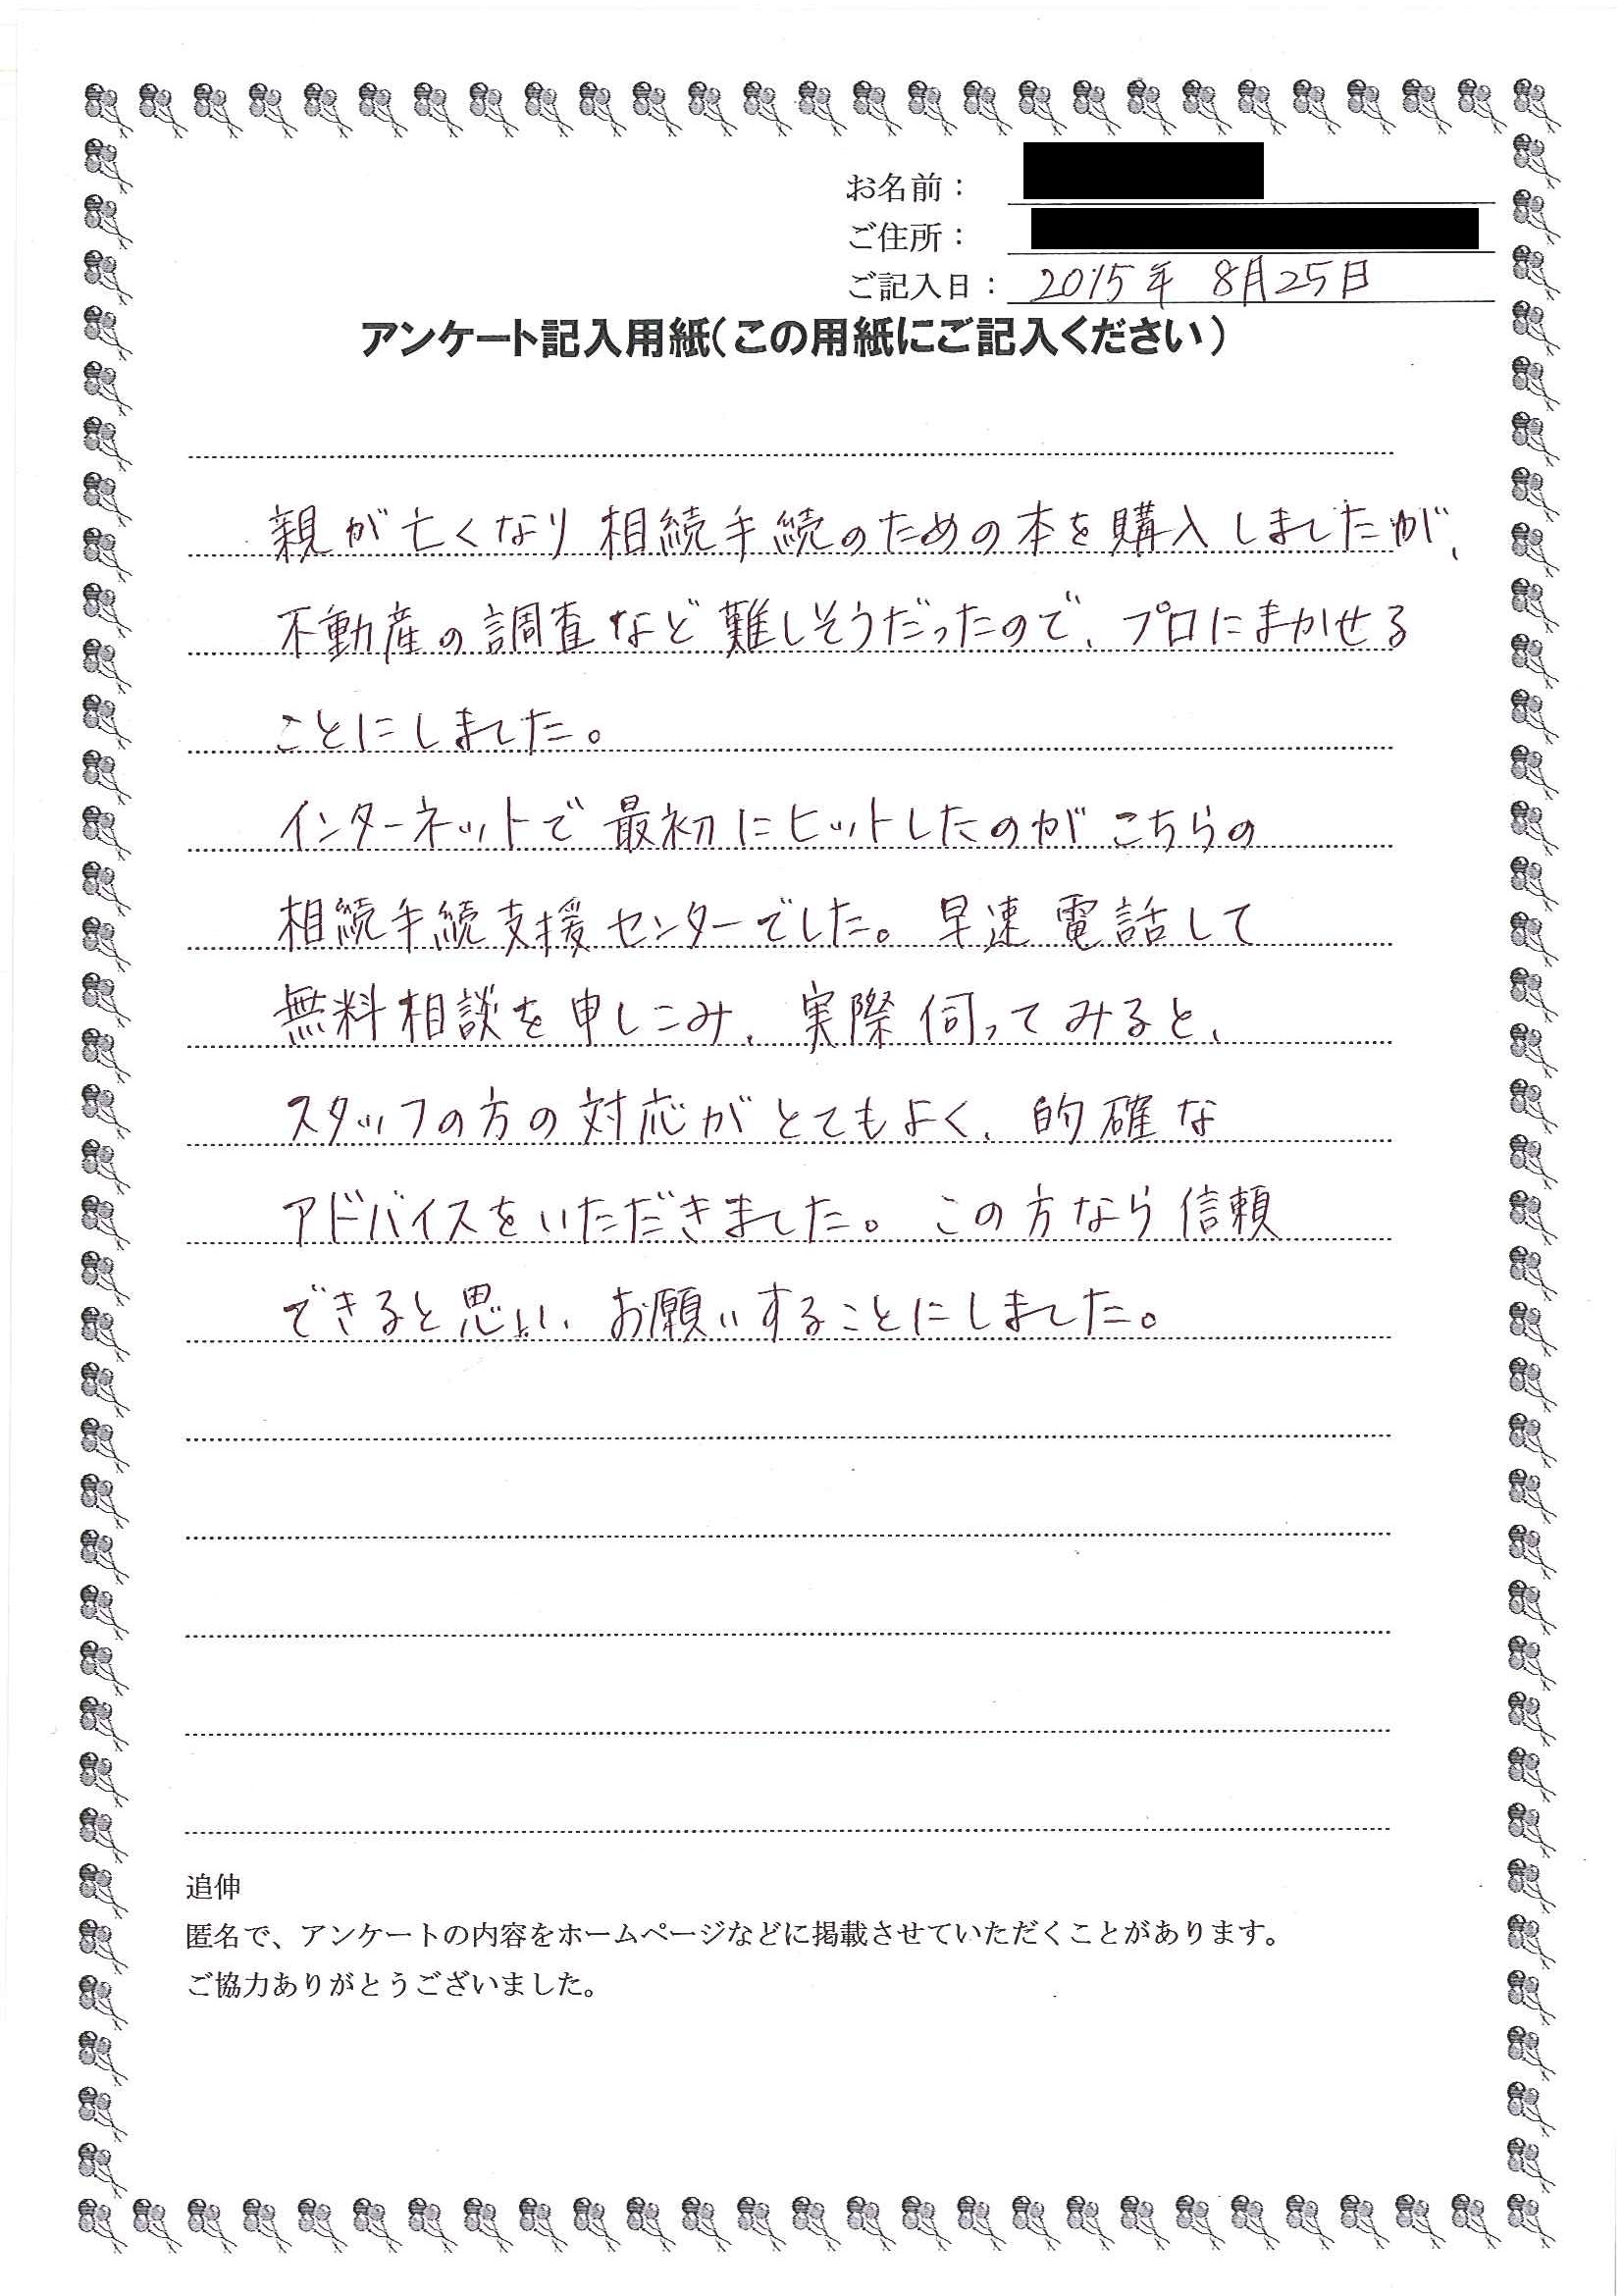 お名前：
ご住所：
ご記入日： 2015年 8月25日
アンケート記入用紙（この用紙にご記入ください）
親が亡くなり相続手続のための本を購入しましたが、
不動産の調査など難しそうだったので、プロにまかせる
ことにしました。
インターネットで最初にヒットしたのがこちらの
相続手続支援センターでした。早速電話して
無料相談を申しこみ、実際伺ってみると、
スタッフの方の対応がとてもよく、的確な
アドバイスをいただきました。この方なら信頼
できると思い、お願いすることにしました。
追伸
匿名で、アンケートの内容をホームページなどに掲載させていただくことがあります。
ご協力ありがとうございました。